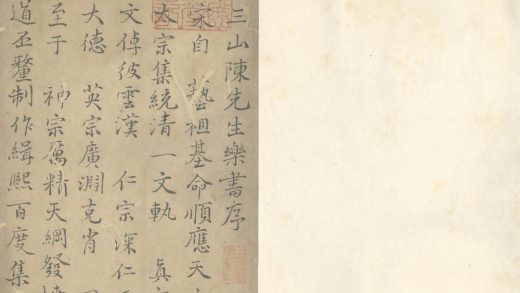 三山陳先生樂書序
宋自 藝祖基命順應天
太宗集統清一文軌 眞
文倬彼雲漢 仁宗深仁
大德 英宗廣淵克肖
至于 神宗厲精天綱發
道丕釐制作緝熙百度集